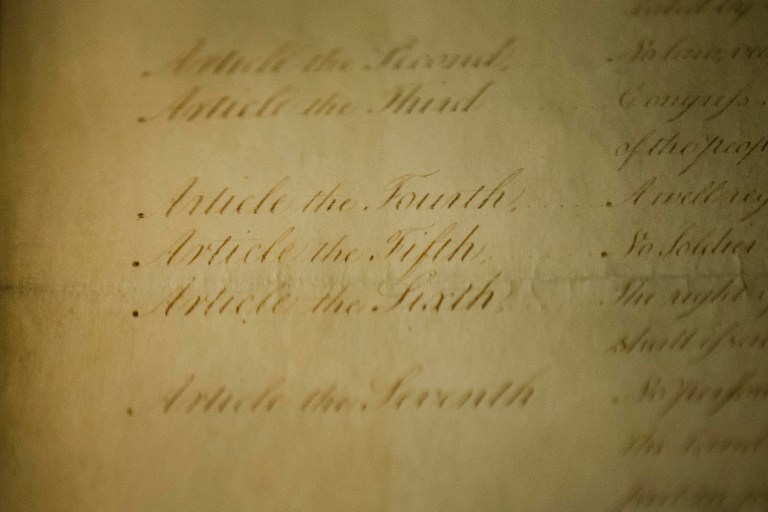 ated by
Article the Second, No law, va
Article the Third Congress
of the peop
Article the Fourth, A well reg
Article the Fifth, No Soldier
Article the Sixth, The right
shall issu
Article the Seventh No person
the Land